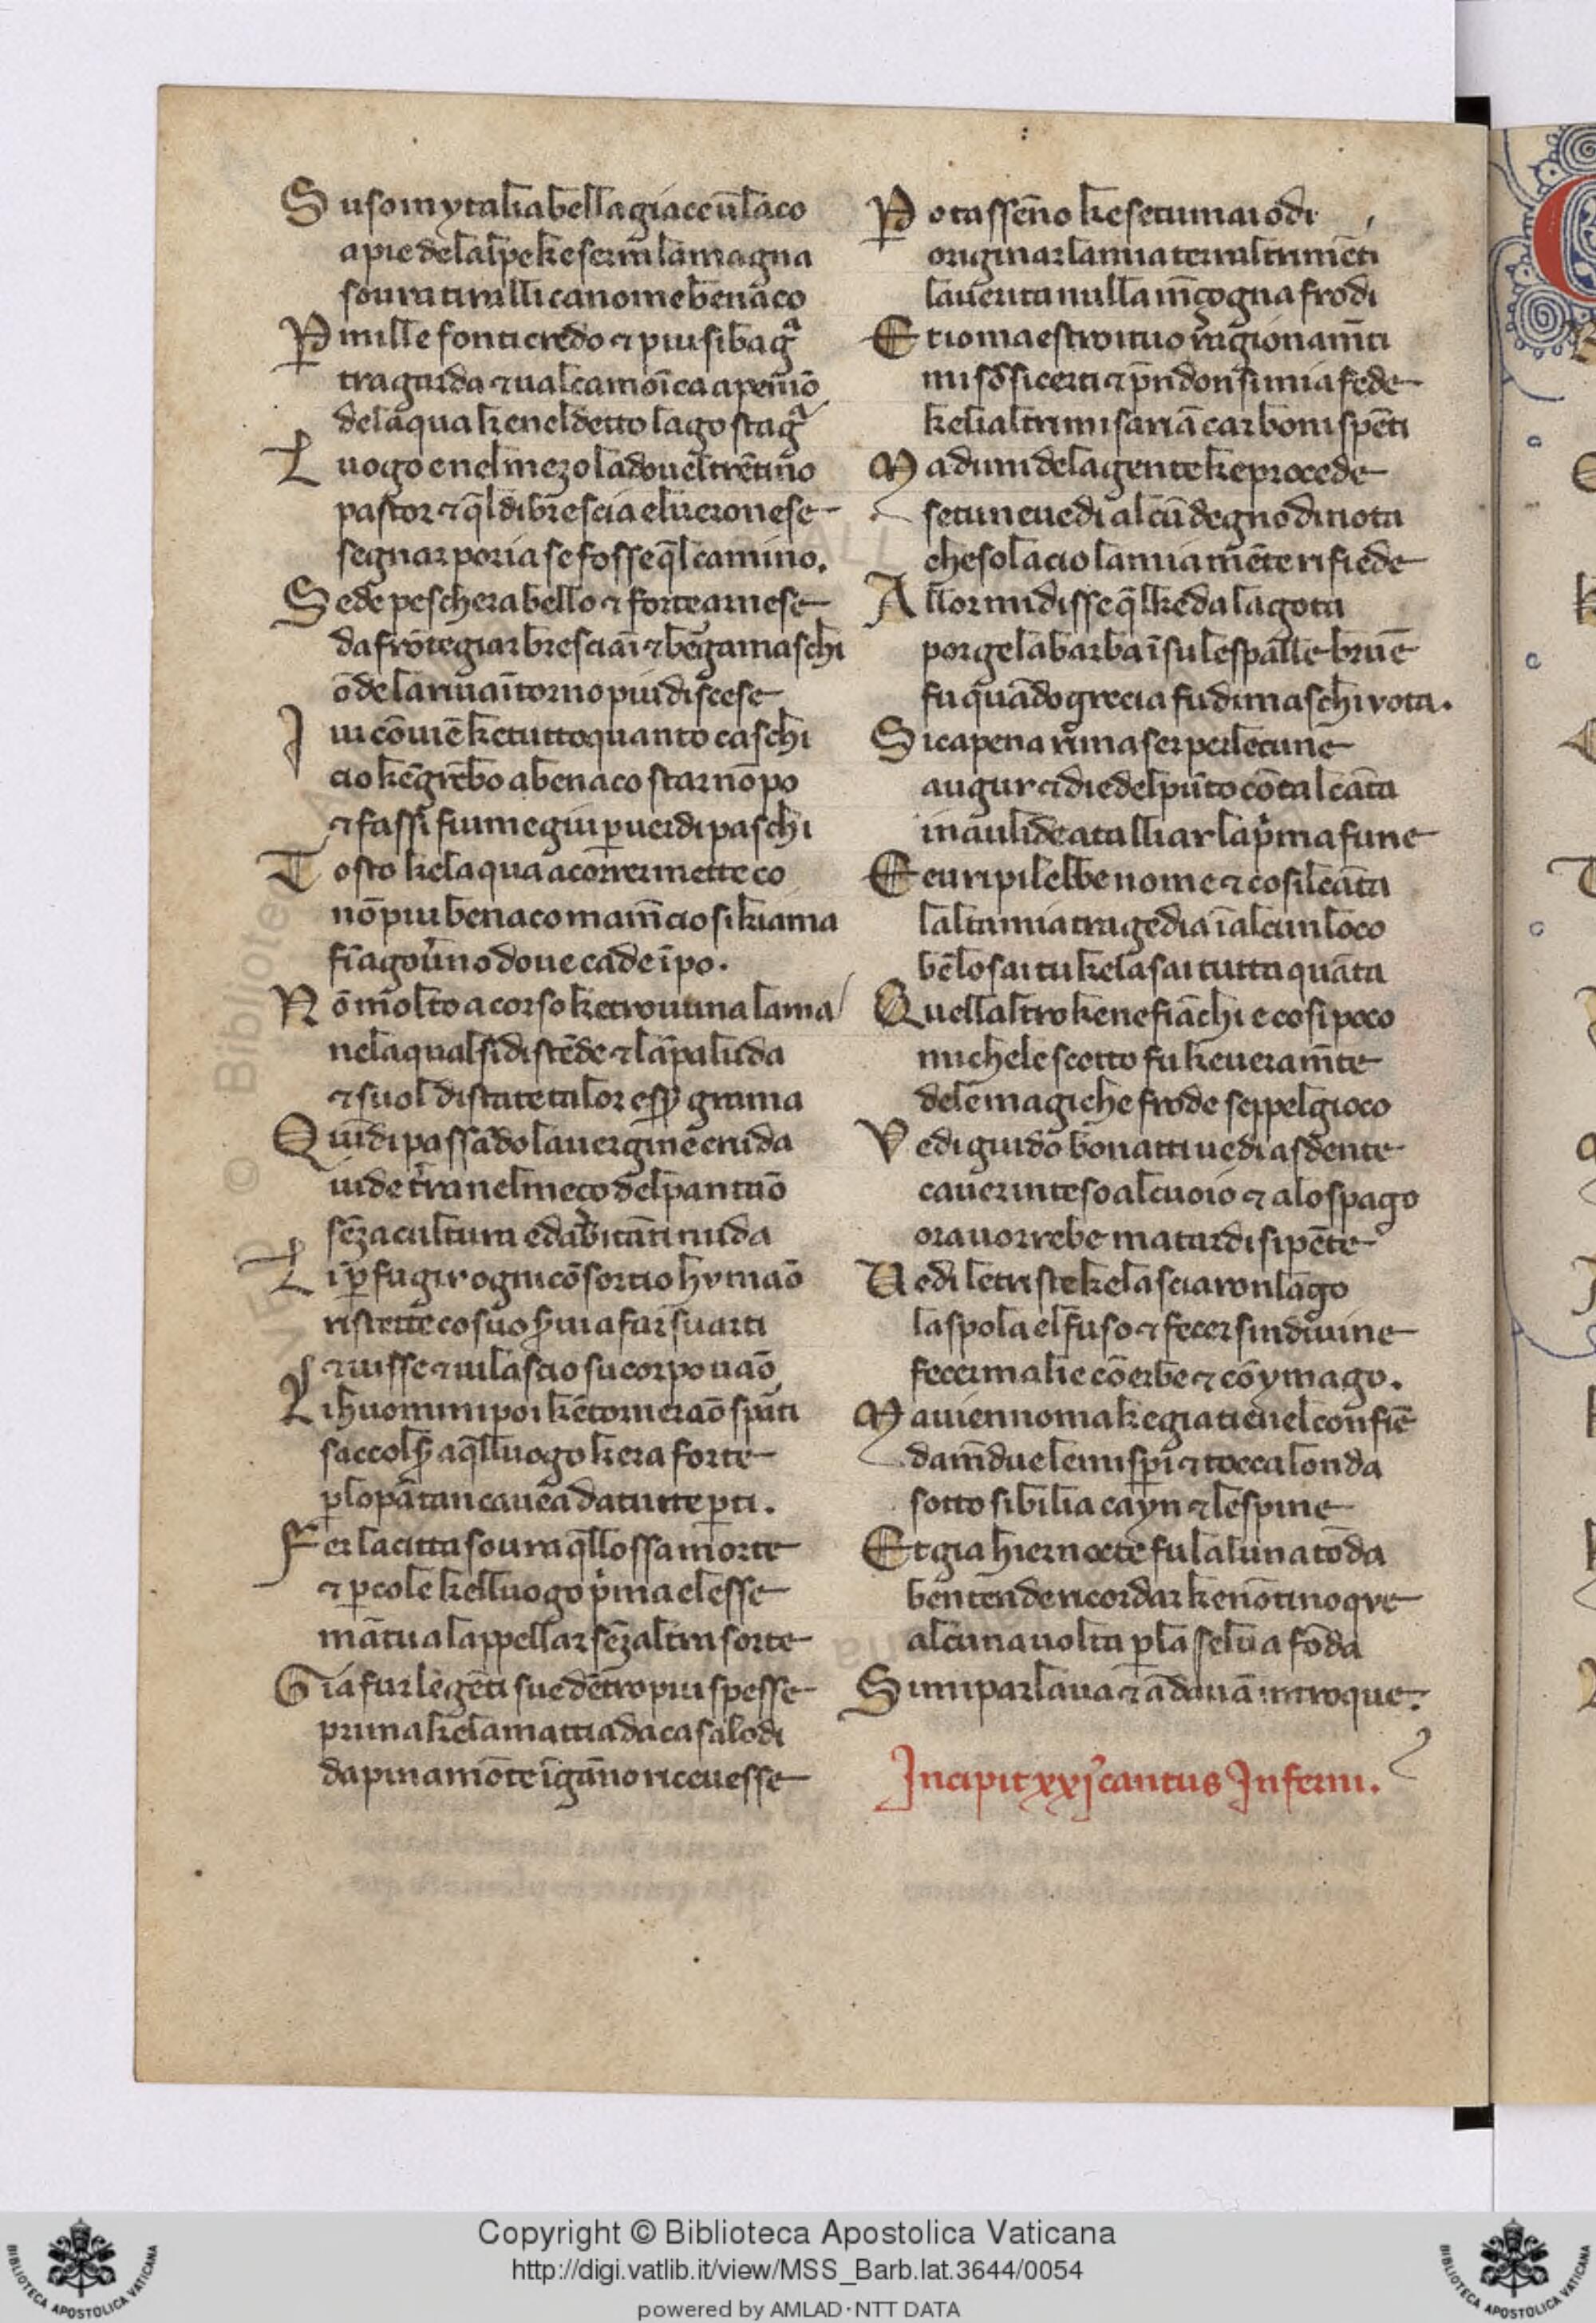 Suso in ytalia bella giace ū laco
a pie de lalpe ke serra lamagna
soura tiralli ca nome benaco
P mille fonti credo ⁊ piu si bagª
tra garda ⁊ ual camoīca apenīo
de laqua ke nel detto lago stagª
Luogo e nel mezo la doue l trētino
pastor ⁊ ql̄ di brescia el ueronese
segnar poria se fosse ql̄ camino.
Sede peschera bello ⁊ forte arnese
da frōtegiar bresciāi ⁊ begamaschi
ōde la riua ītorno piu discese
Iui cōuiē ke tutto quanto caschi
cio kē grēbo a benaco star nō po
⁊ fassi fiume giu p uerdi paschi
Tosto ke laqua a correr mette co
nō piu benaco ma mēcio si kiama
fī a gouīno doue cade ī po.
Nō molto a corso ke troua una lama
ne la qual si distēde ⁊ lā paluda
⁊ suol distate talor esſ grama
Quīdi passādo la uergine cruda
uide t̄ra nel meço del pantāo
sēza cultura e dabitāti nuda
Li p fugir ogni cōsortio hvmāo
ristette co suo s̄ui a far su arti
⁊ uisse ⁊ ui lascio su corpo uāo
Li huomini poi kētorno eraō sparti
saccols̄ a ql̄ luogo kera forte
p lo pātan cauea da tutte pti.
Fer la citta soura qll̄ ossa morte
⁊ p cole kel luogo pma elesse
mātua lappellar sēzaltra sorte
Gia fur le gēti sue dētro piu spesse
prima ke la mattia da casalodi
da pinamōte īgāno riceuesse
Po tassēno ke se tu mai odi
originar la mia terra altrimēti
la uerita nulla mēçogna frodi
Et io maestro i tuo ragionamti
mi sō si certi ⁊ prēdon si mia fede
ke li altri mi sariā carboni spēti
Ma dimi de la gente ke procede
se tu ne uedi alcū degno di nota
che solacio la mia mēte rifiede
Allor mi disse ql̄ ke da la gota
porge la barba ī su le spalle brune
fu quādo grecia fu di maschi vota.
Si ca pena rimaser per le cune
augur ⁊ die del pūto cō talcāta
in aulide a talliar la pma fune
Eeuripilelbe nome ⁊ cosi lcāta
lalta mia tragedia ī alcun loco
bē lo sai tu ke la sai tutta quāta
Quellaltro ke ne fiāchi e cosi poco
michele scotto fu ke ueramte
de le magiche frode seppe l gioco
Vedi guido bonatti uedi asdente
cauer inteso al cuoio ⁊ a lo spago
ora uorrebe ma tardi si pēte
Uedi le triste ke lasciaron lago
la spola el fuso ⁊ fecersindiuine
fecer malie cō erbe ⁊ cō ymago.
Ma uienno mai ke gia tiene l confine
damēdue lemispi ⁊ tocca londa
sotto sibilia cayn ⁊ le spine
Et gia hiernocte fu la luna tōda
ben tē de ricordar ke nō ti noqve
alcuna uolta p la selua fōda
Si mi parlaua ⁊ ādauā introque.
Incipit xxj cantus Inferni.
Copyright © Biblioteca Apostolica Vaticana
http://digi.vatlib.it/view/MSS_Barb.lat.3644/0054
powered by AMLAD·NTT DATA